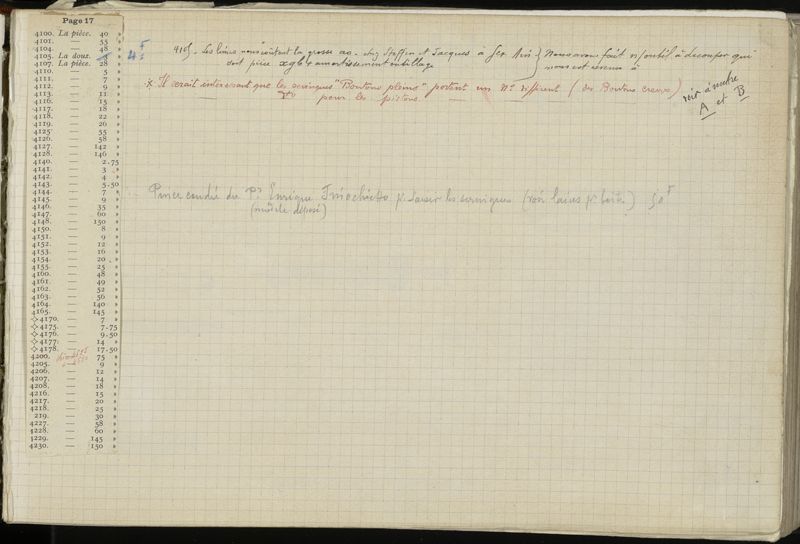 Page 17
4100. La pièce. 40 »
4101. — 55 »
4104. — 48 »
4105. La douz.
4107. La pièce. 28 »
4110. — 5 »
4111. — 7 »
4112. — 9 »
4113. — 11 »
4116. — 15 »
4117. — 18 »
4118. — 22 »
4119. — 26 »
4125 — 55 »
4126. — 58 »
4127. — 142 »
4128. — 146 »
4140. — 2.75
4141. — 3 »
4142. — 4 »
4143. — 5.50
4144. — 7 »
4145. — 9 »
4146. — 35 »
4147. — 60 »
4148. — 150 »
4150. — 8 »
4151. — 9 »
4152. — 12 »
4153. — 16 »
4154. — 20 »
4155. — 25 »
4160. — 48 »
4161. — 49 »
4162. — 52 »
4163. — 56 »
4164. — 140 »
4165. — 145 »
4170. — 7 »
4175. — 7.75
4176. — 9.50
4177. — 14 »
4178. — 17.50
4200. 75 »
4205. — 9 »
4206. — 12 »
4207. — 14 »
4208. — 18 »
4216. — 15 »
4217. — 20 »
4218. — 25 »
219. — 30 »
4227. — 58 »
4228. — 60 »
4229. — 145 »
4230. — 150 »
4105. Les lames nous coûtent la grosse 20. chez Steffen et Jacques à } Nous avons fait outil à découper qui
soit pièce amortissement outillage nous est revenu à
x Il serait intéressant que les seringues "Boutons pleins" portent un N° différent (des Boutons creux)
— d° — pour les pistons — —
voir à mettre
A et B
Pince coudée du Dr Enrique p. saisir les seringues (voir p. boîte) 50 F
(modèle déposé)